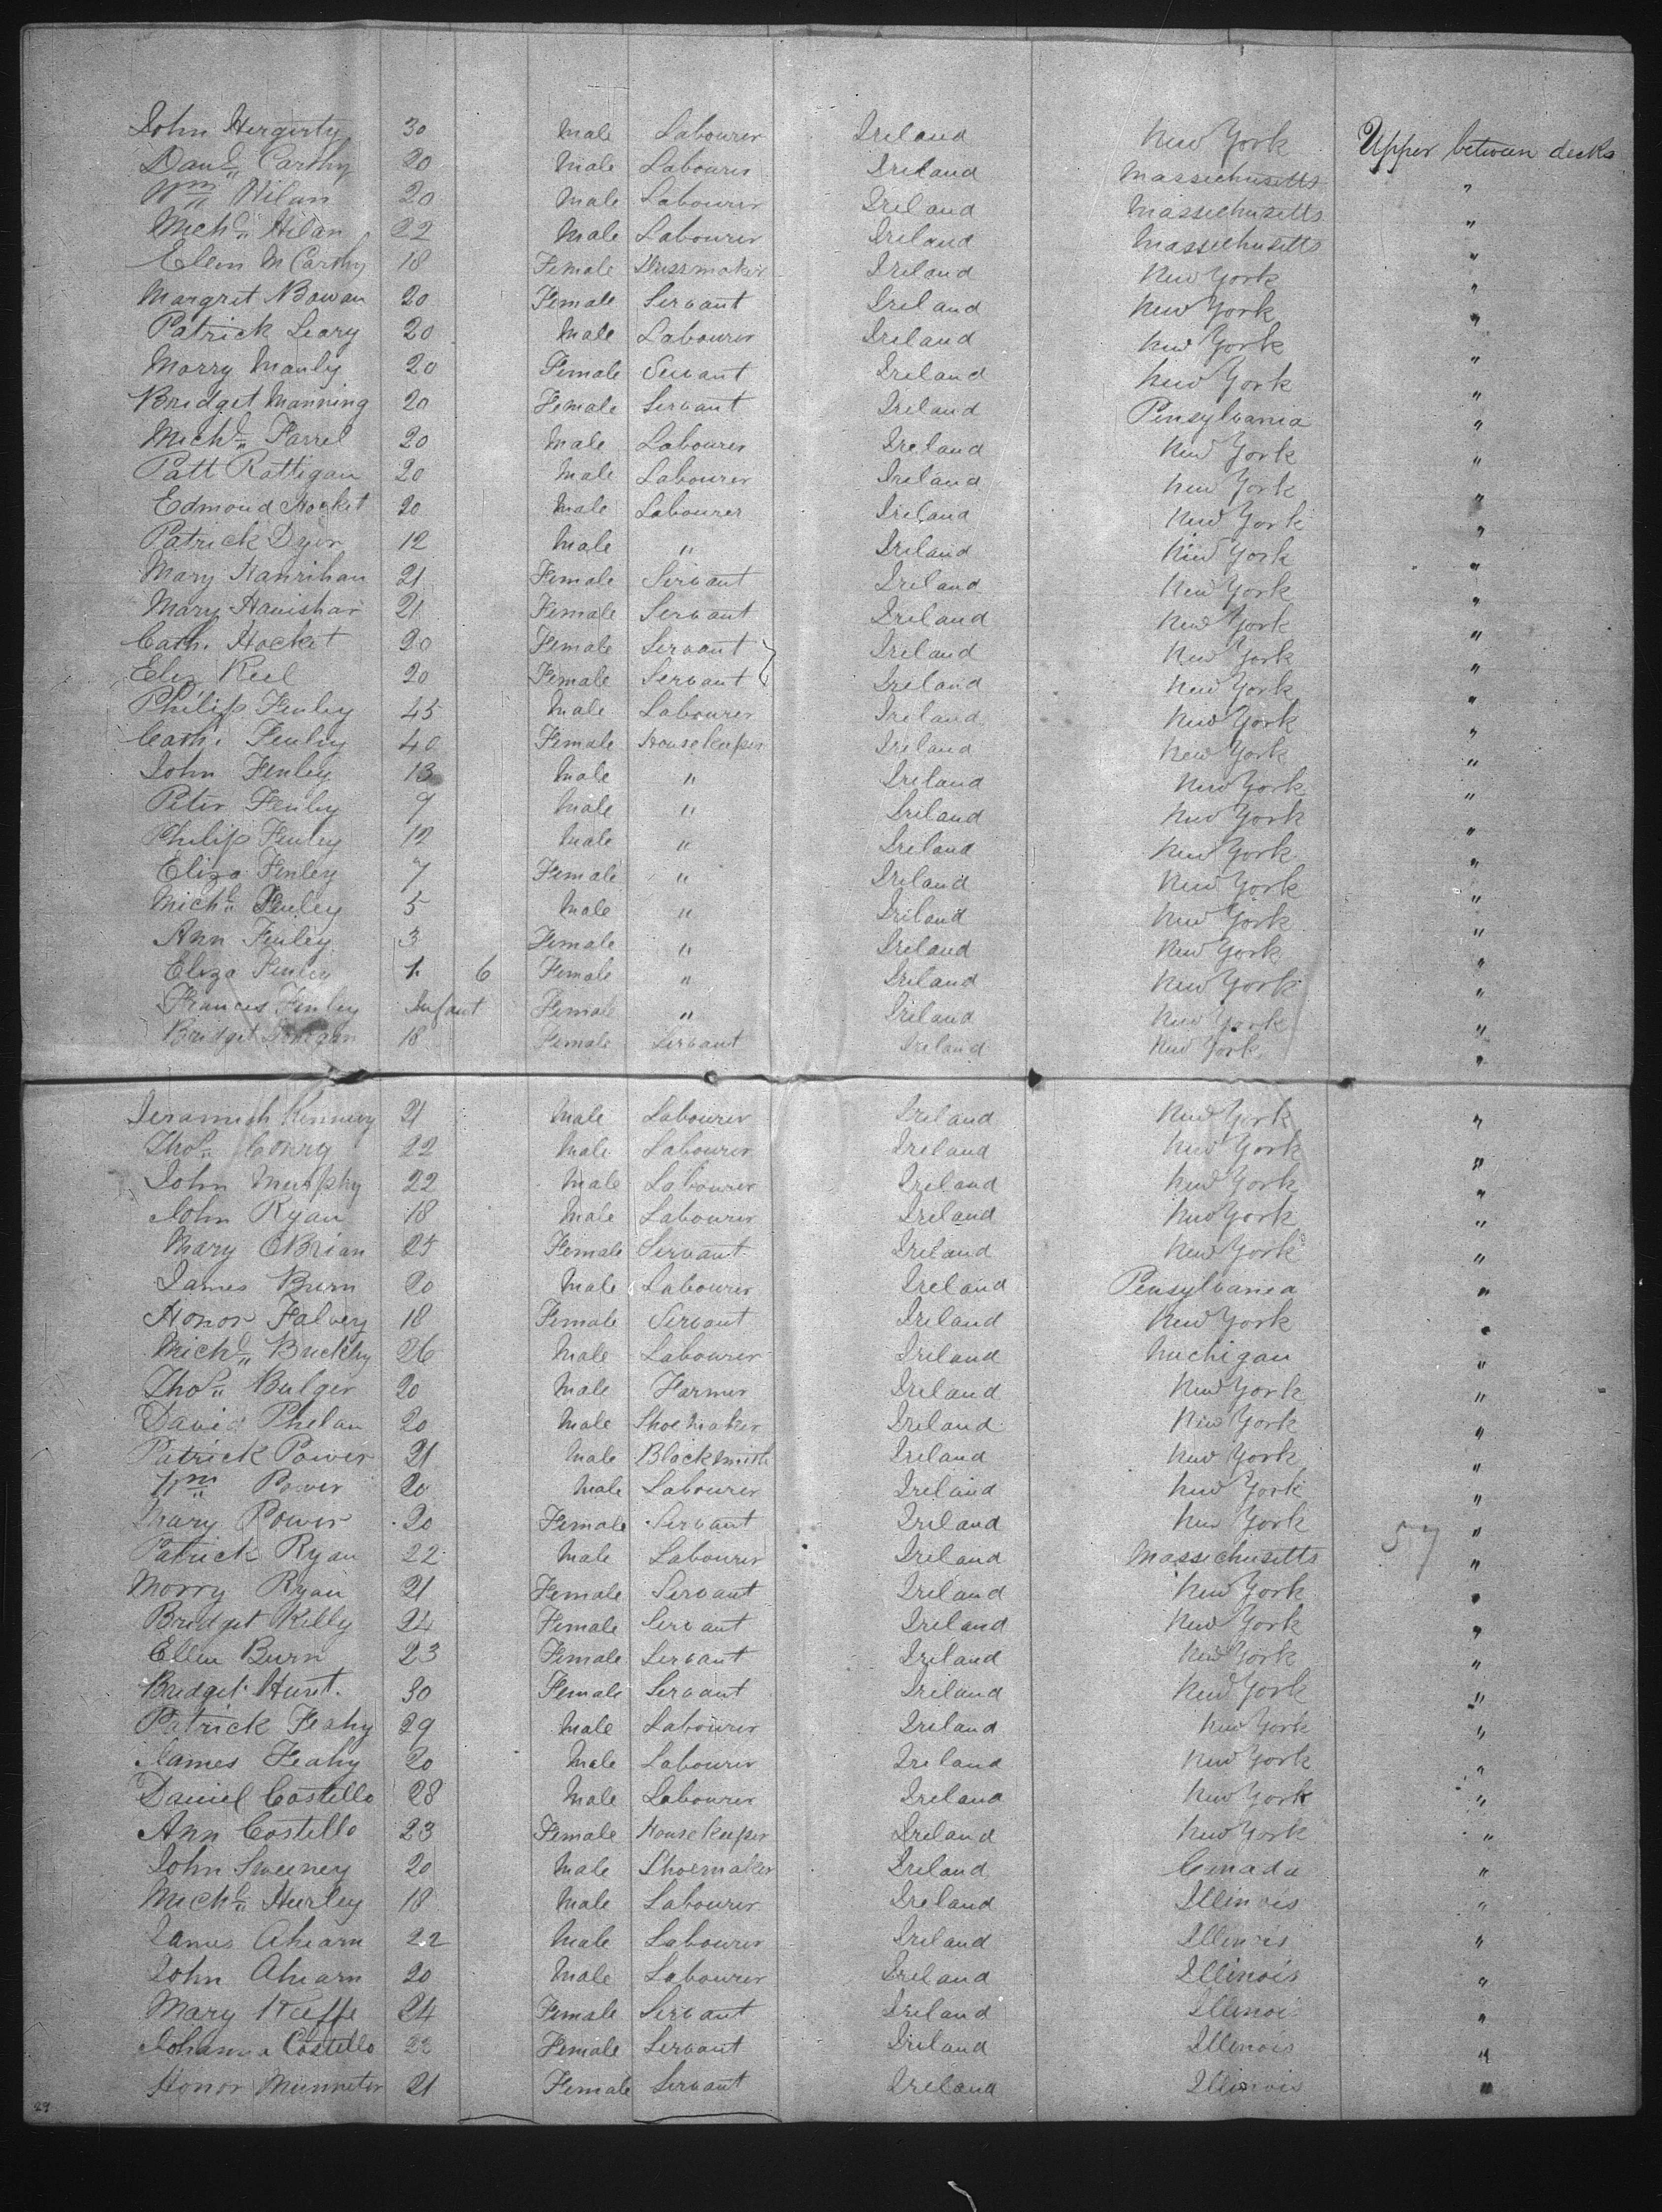 John Hergirty 30 Male Labourer Ireland New York Upper between decks
Danl. Carthy 20 Male Labourer Ireland Massichusetts "
Wm Hilan 20 Male Labourer Ireland Massichusetts "
Michl. Hilan 22 Male Labourer Ireland Massichusetts "
Elen McCarthy 18 Female Dressmaker Ireland New York "
Margret Bowan 20 Female Servant Ireland New York "
Patrick Leary 20 Male Labourer Ireland New York "
Marry Manly 20 Female Servant Ireland New York "
Bridget Manning 20 Female Servant Ireland Pensylvania "
Michl. Farrel 20 Male Labourer Ireland New York "
Patt Rattigan 20 Male Labourer Ireland New York "
Edmond Hocket 20 Male Labourer Ireland New York "
Patrick Dyer 12 Male " Ireland New York "
Mary Hanrihan 21 Female Servant Ireland New York "
Mary 21 Female Servant Ireland New York "
Cath. Hocket 20 Female Servant Ireland New York "
Eliz Keel 20 Female Servant Ireland New York "
Philip Fenley 45 Male Labourer Ireland New York "
Cath. Fenley 40 Female Housekeeper Ireland New York "
John Fenley 13 Male " Ireland New York "
Peter Fenley 9 Male " Ireland New York "
Philip Fenley 12 Male " Ireland New York "
Eliza Fenley 7 Female " Ireland New York "
Michl. Fenley 5 Male " Ireland New York "
Ann Fenley 3 Female " Ireland New York "
Eliza Fenley 1. 6 Female " Ireland New York "
Frances Fenley Infant Female " Ireland New York "
Bridget 18 Female Servant Ireland New York "
Jeramieh Kennedy 21 Male Labourer Ireland New York "
Thos. Conry 22 Male Labourer Ireland New York "
John Murphy 22 Male Labourer Ireland New York "
John Ryan 18 Male Labourer Ireland New York "
Mary OBrian 25 Female Servant Ireland New York "
James Burn 20 Male Labourer Ireland Pensylvania "
Honor Falvey 18 Female Servant Ireland New York "
Michl. Buckley 26 Male Labourer Ireland Michigan "
Thos. Bulger 20 Male Farmer Ireland New York "
David Phelan 20 Male Shoemaker Ireland New York "
Patrick Power 21 Male Blacksmith Ireland New York "
Wm Power 20 Male Labourer Ireland New York "
Mary Power 20 Female Servant Ireland New York 57 "
Patrick Ryan 22 Male Labourer Ireland Massichusetts "
Morry Ryan 21 Female Servant Ireland New York "
Bridget Kelly 24 Female Servant Ireland New York "
Ellen Burn 23 Female Servant Ireland New York "
Bridget Hunt. 30 Female Servant Ireland New York "
Patrick Feahy 29 Male Labourer Ireland New York "
James Feahy 20 Male Labourer Ireland New York "
Daniel Costello 28 Male Labourer Ireland New York "
Ann Costello 23 Female Housekeeper Ireland New York "
John Sweeney 20 Male Shoemaker Ireland Canada "
Michl. Hurley 18 Male Labourer Ireland Illinois "
James Ahearn 22 Male Labourer Ireland Illinois "
John Ahearn 20 Male Labourer Ireland Illinois "
Mary Keeffe 24 Female Servant Ireland Illinois "
Johanna Costello 22 Female Servant Ireland Illinois "
Honor 21 Female Servant Ireland Illinois "